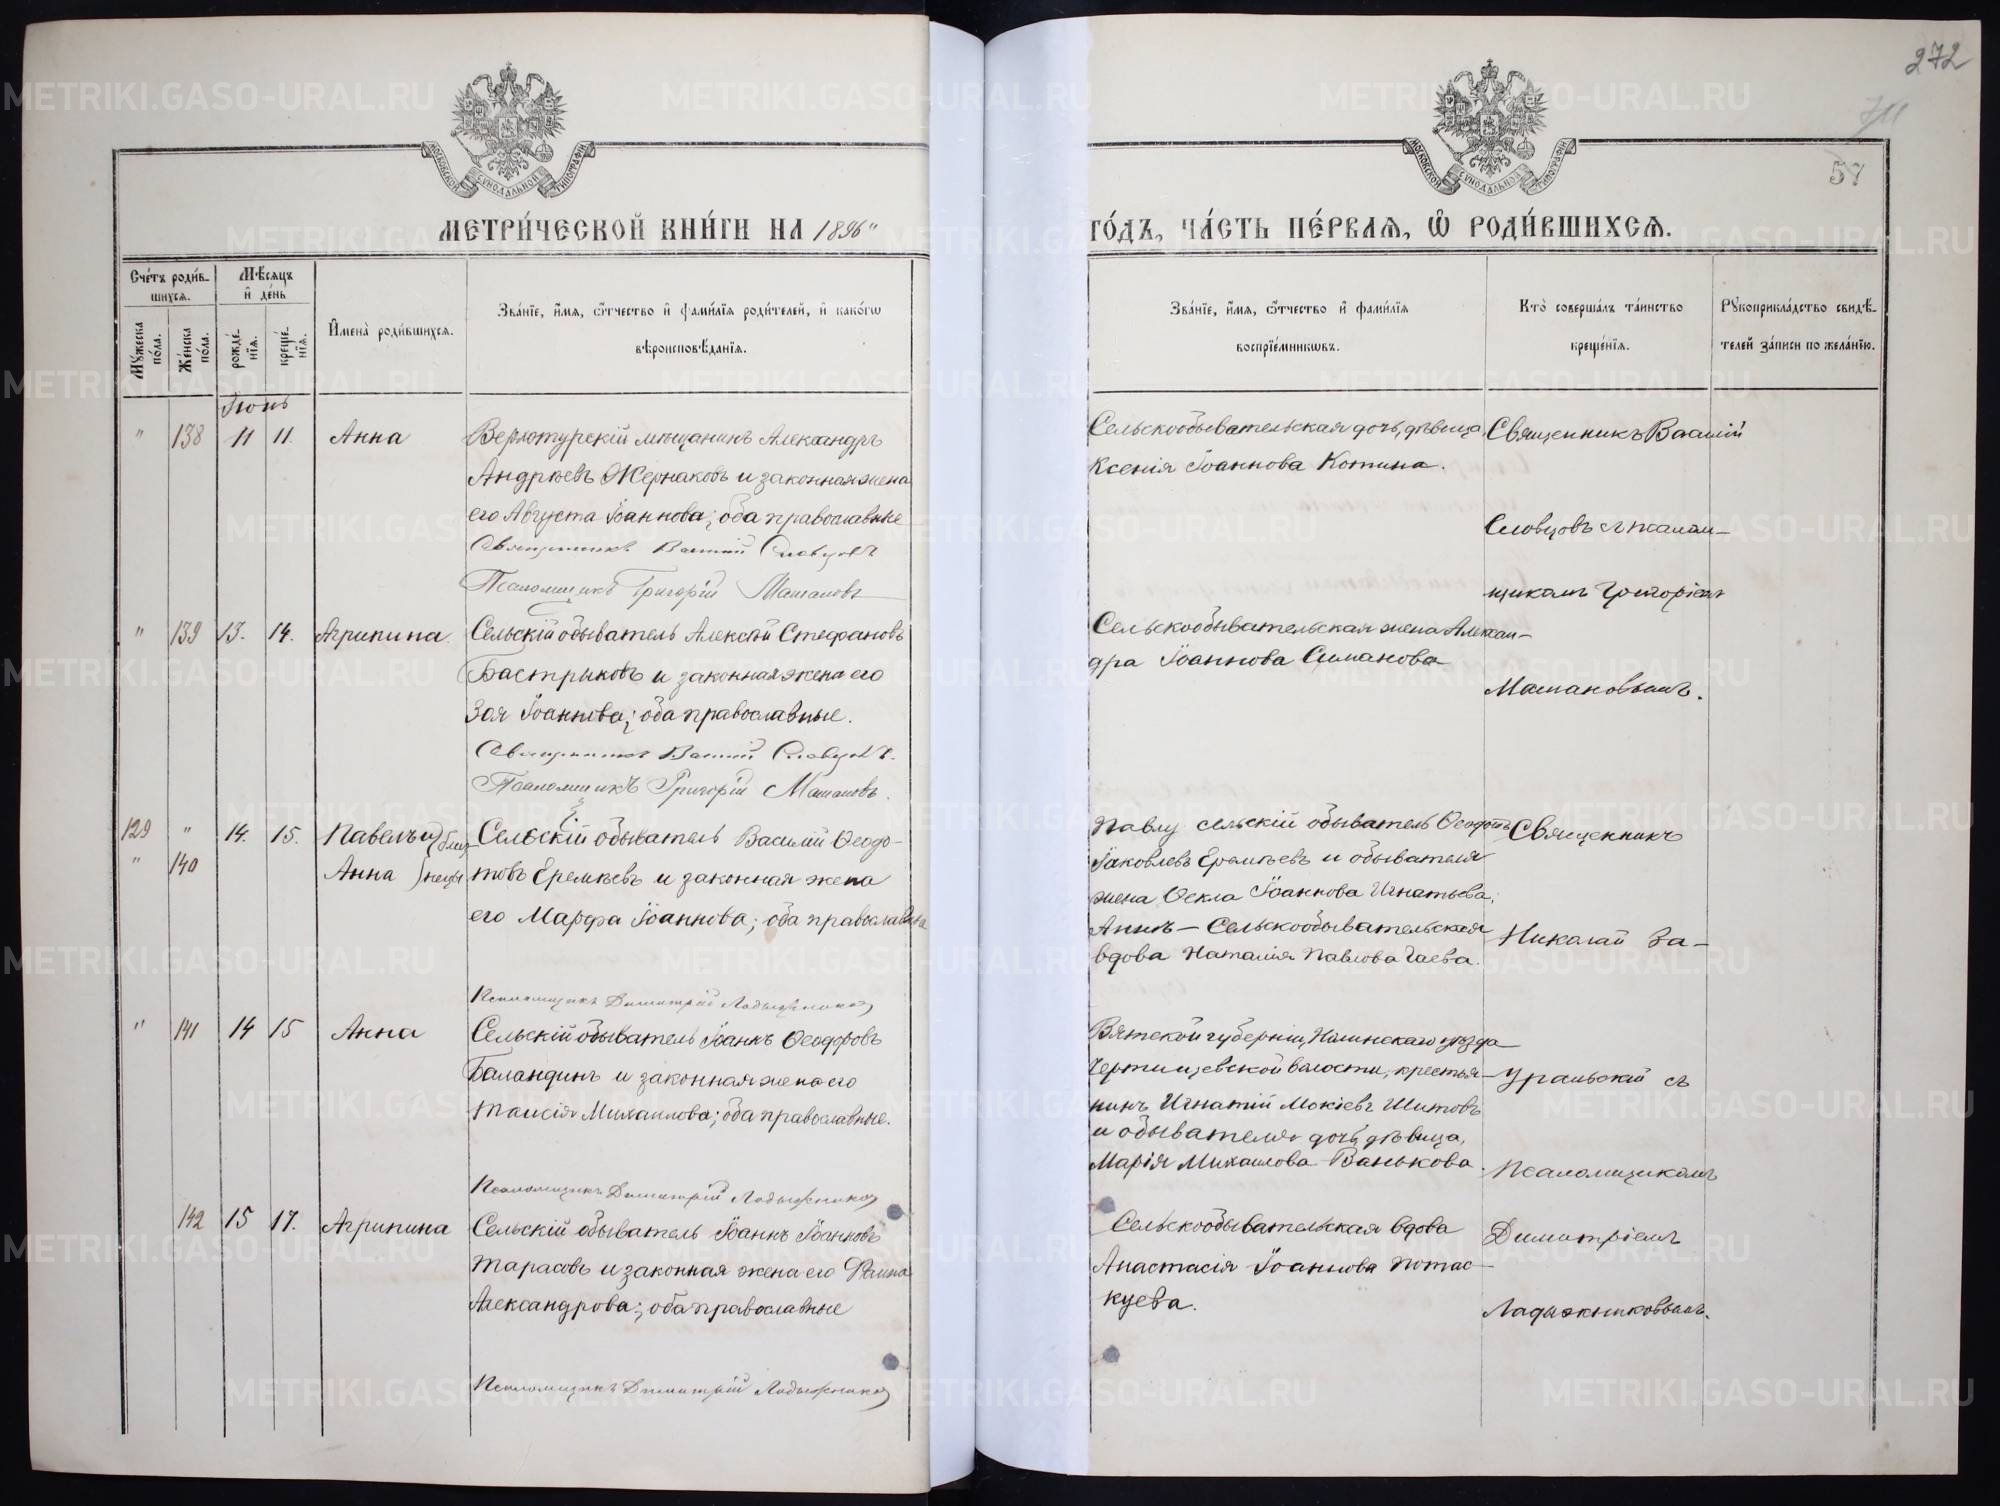 272
711
57
МОСКОВСКОЙ СѴНОДАЛЬНОЙ ТИПОГРАФІИ
МОСКОВСКОЙ СѴНОДАЛЬНОЙ ТИПОГРАФІИ
МЕТРИ́ЧЕСКОЙ КНИ́ГИ НА 1896"
ГО́ДЪ, ЧА́СТЬ ПЕ́РВАЯ, Ѡ РОДИ́ВШИХСЯ.
Сче́тъ роди́в-
шихся.
Мѣ́сяцъ
и҆ де́нь
Мꙋ́жеска по́ла.
Же́нска по́ла.
рожде́нїя.
креще́нїя.
И҆мена̀ роди́вшихся.
Зва́нїе, и҆́мя, ѻ҆́тчество и҆ фамѝлїя роди́телей, и҆ како́гѡ
вѣроисповѣ́данїя.
Зва́нїе, и҆́мя, ѻ҆́тчество и҆ фамѝлїя
воспрїе́мникѡвъ.
Кто̀ соверша́лъ та́инство
креще́нїя.
Рꙋкоприкла́дство свидѣ́-
телей за́писи по жела́нїю.
Іюнь
" 138 11 11. Анна
Верхотурскій мѣщанинъ Александръ
Андреевъ Жернаковъ и законная жена
его Августа Іоаннова; оба православные
Священникъ Василій Словцовъ
Псаломщикъ Григорій Матановъ
Сельскообывательская дочь, дѣвица
Ксенія Іоаннова Котина.
Священникъ Василій
Словцовъ съ псалом-
щикомъ Григоріемъ
Матановымъ.
" 139 13. 14. Агрипина
Сельскій обыватель Алексѣй Стефановъ
Бастрыковъ и законная жена его
Зоя Іоаннова; оба православные.
Священникъ Василій Словцовъ.
Псаломщикъ Григорій Матановъ.
Сельскообывательская жена Алексан-
дра Іоаннова Симанова
129 " 14. 15. Павелъ и } близ
" 140 Анна } нецы
Сельскій обыватель Василій Ѳеодо-
товъ Еремѣевъ и законная жена
его Марфа Іоаннова; оба православна
Псаломщикъ Димитрій Ладыжников
Павлу сельскій обыватель Ѳеодотъ
Іаковлевъ Еремѣевъ и обывателя
жена Ѳекла Іоаннова Игнатьева,
Аннѣ – Сельскообывательская
вдова Наталія Павлова Гаева.
Священникъ
Николай За-
уральскій съ
псаломщикомъ
Димитріемъ
Ладыжниковымъ.
" 141 14 15 Анна
Сельскій обыватель Іоаннъ Ѳеодоровъ
Баландинъ и законная жена его
Таисія Михаилова; оба православные.
Псаломщикъ Димитрій Ладыжников
Вятской губерніи, Нолинскаго уѣзда
волости, крестья-
нинъ Игнатій Мокіевъ Шитовъ
и обывателя дочь, дѣвица,
Марія Михаилова Ванькова.
142 15 17. Агрипина
Сельскій обыватель Іоаннъ Іоанновъ
Тарасовъ и законная жена его Фаина
Александрова; оба православные
Псаломщикъ Димитрій Ладыжников
Сельскообывательская вдова
Анастасія Іоаннова Потас-
куева.
METRIKI.GASO-URAL.RU